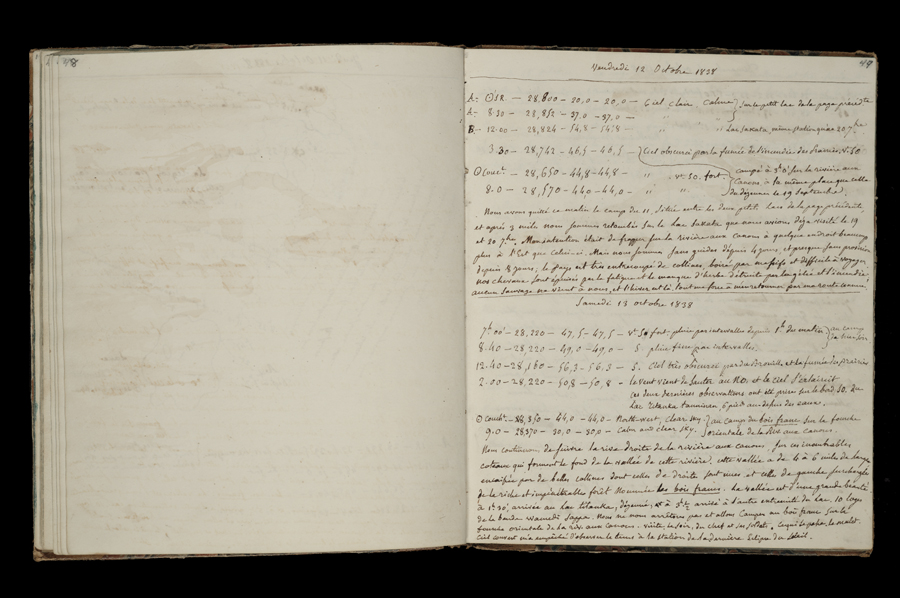 48
49
Vendredi 12 Octobre 1838
A = ⊙ SR. — 28,800 — 20,0 — 20,0 — Ciel clair, Calme } sur le petit lac de la page précédte
A — 8.30 — 28,852 — 37,0 — 37,0 — " "
B — 12.00 — 28,824 — 54,8 — 54,8 — " " Lac Sakata, même station qu'au 20 7bre
3.30 — 28,742 — 46,5 — 46,5 — Ciel obscurci par la fumée de l'incendie des Prairies, vt. SO
⊙ couct. — 28,650 — 44,8 — 44,8 — " vt. SO. fort. campé à sur la rivière aux
8.0 — 28,570 — 44,0 — 44,0 — " " Canons à la même place que celle
du déjeuner le 19 Septembre.
Nous avons quitté ce matin le camp du 11, située entre les deux petits lacs de la page précédente,
et après 3 mile nous sommes retombés sur le lac Sakata que nous avions déjà visité le 19
et 20 7bre. Mon intention était de frapper sur la rivière aux canons à quelque endroit beaucoup
plus à l'Est que celui-ci. Mais nous sommes sans guides depuis 4 jours, et presque sans provisions
depuis 8 jours; le pays est très entrecoupé de collines, boisé par et difficile à voyager
nos chevaux sont épuisés par la fatigue et le manque d'herbe détruite par la gelée et l'incendie,
aucun Sauvage ne vient à nous, et l'hiver est là, tout me force à m'en retourner par ma route connue.
Samedi 13 octobre 1838
7h 00' — 28,220 — 47,5 — 47,5 — vt. S fort. pluie par intervalles depuis 1h du matin } au camp
8.40 — 28,220 — 49,0 — 49,0 — S. pluie par intervalles. d'hier soir
12.40 — 28,180 — 56,3 — 56,3 — S. Ciel très obscurci par du Brouill. et la fumée des Prairies
2.00 — 28,220 — 50,8 — 50,8 — le vent vient de sauter au NO. et le ciel s'éclaircit
ces deux dernières observations ont été prises sur le bord SO. du
Lac Titanka Tanninan, 6 pieds au-dessus des eaux.
⊙ couch. — 28,350 — 44,0 — 44,0 — North-west, clear sky. } au camp du bois franc sur la fourche
9.0 — 28,370 — 30,0 — 30,0 — Calm and clear sky. } orientale de la Riv. aux Canons.
Nous continuons de suivre la rive droite de la rivière aux canons, sur ces innombrables
coteaux qui forment le fond de la vallée de cette rivière. cette vallée a de 4 à 6 miles de large
encaissée par de belles collines dont celles de droite sont nues et celles de gauche surchargées
de la riche et impénétrable forêt nommée les bois francs. La vallée est d'une grande beauté
à 1h 30, arrivée au lac titanka, déjeuner, et à 3h ½ arrivé à l'autre extrémité du lac. 10 loges
de la bande Wamedi Sappa. Nous ne nous arrêtons pas et allons camper au bois franc sur la
fourche orientale de la riv. aux canons. Visite, le soir, du chef et ses soldats.
Ciel couvert m'a empêché d'observer le tems de la station de la dernière Eclipse du Soleil.